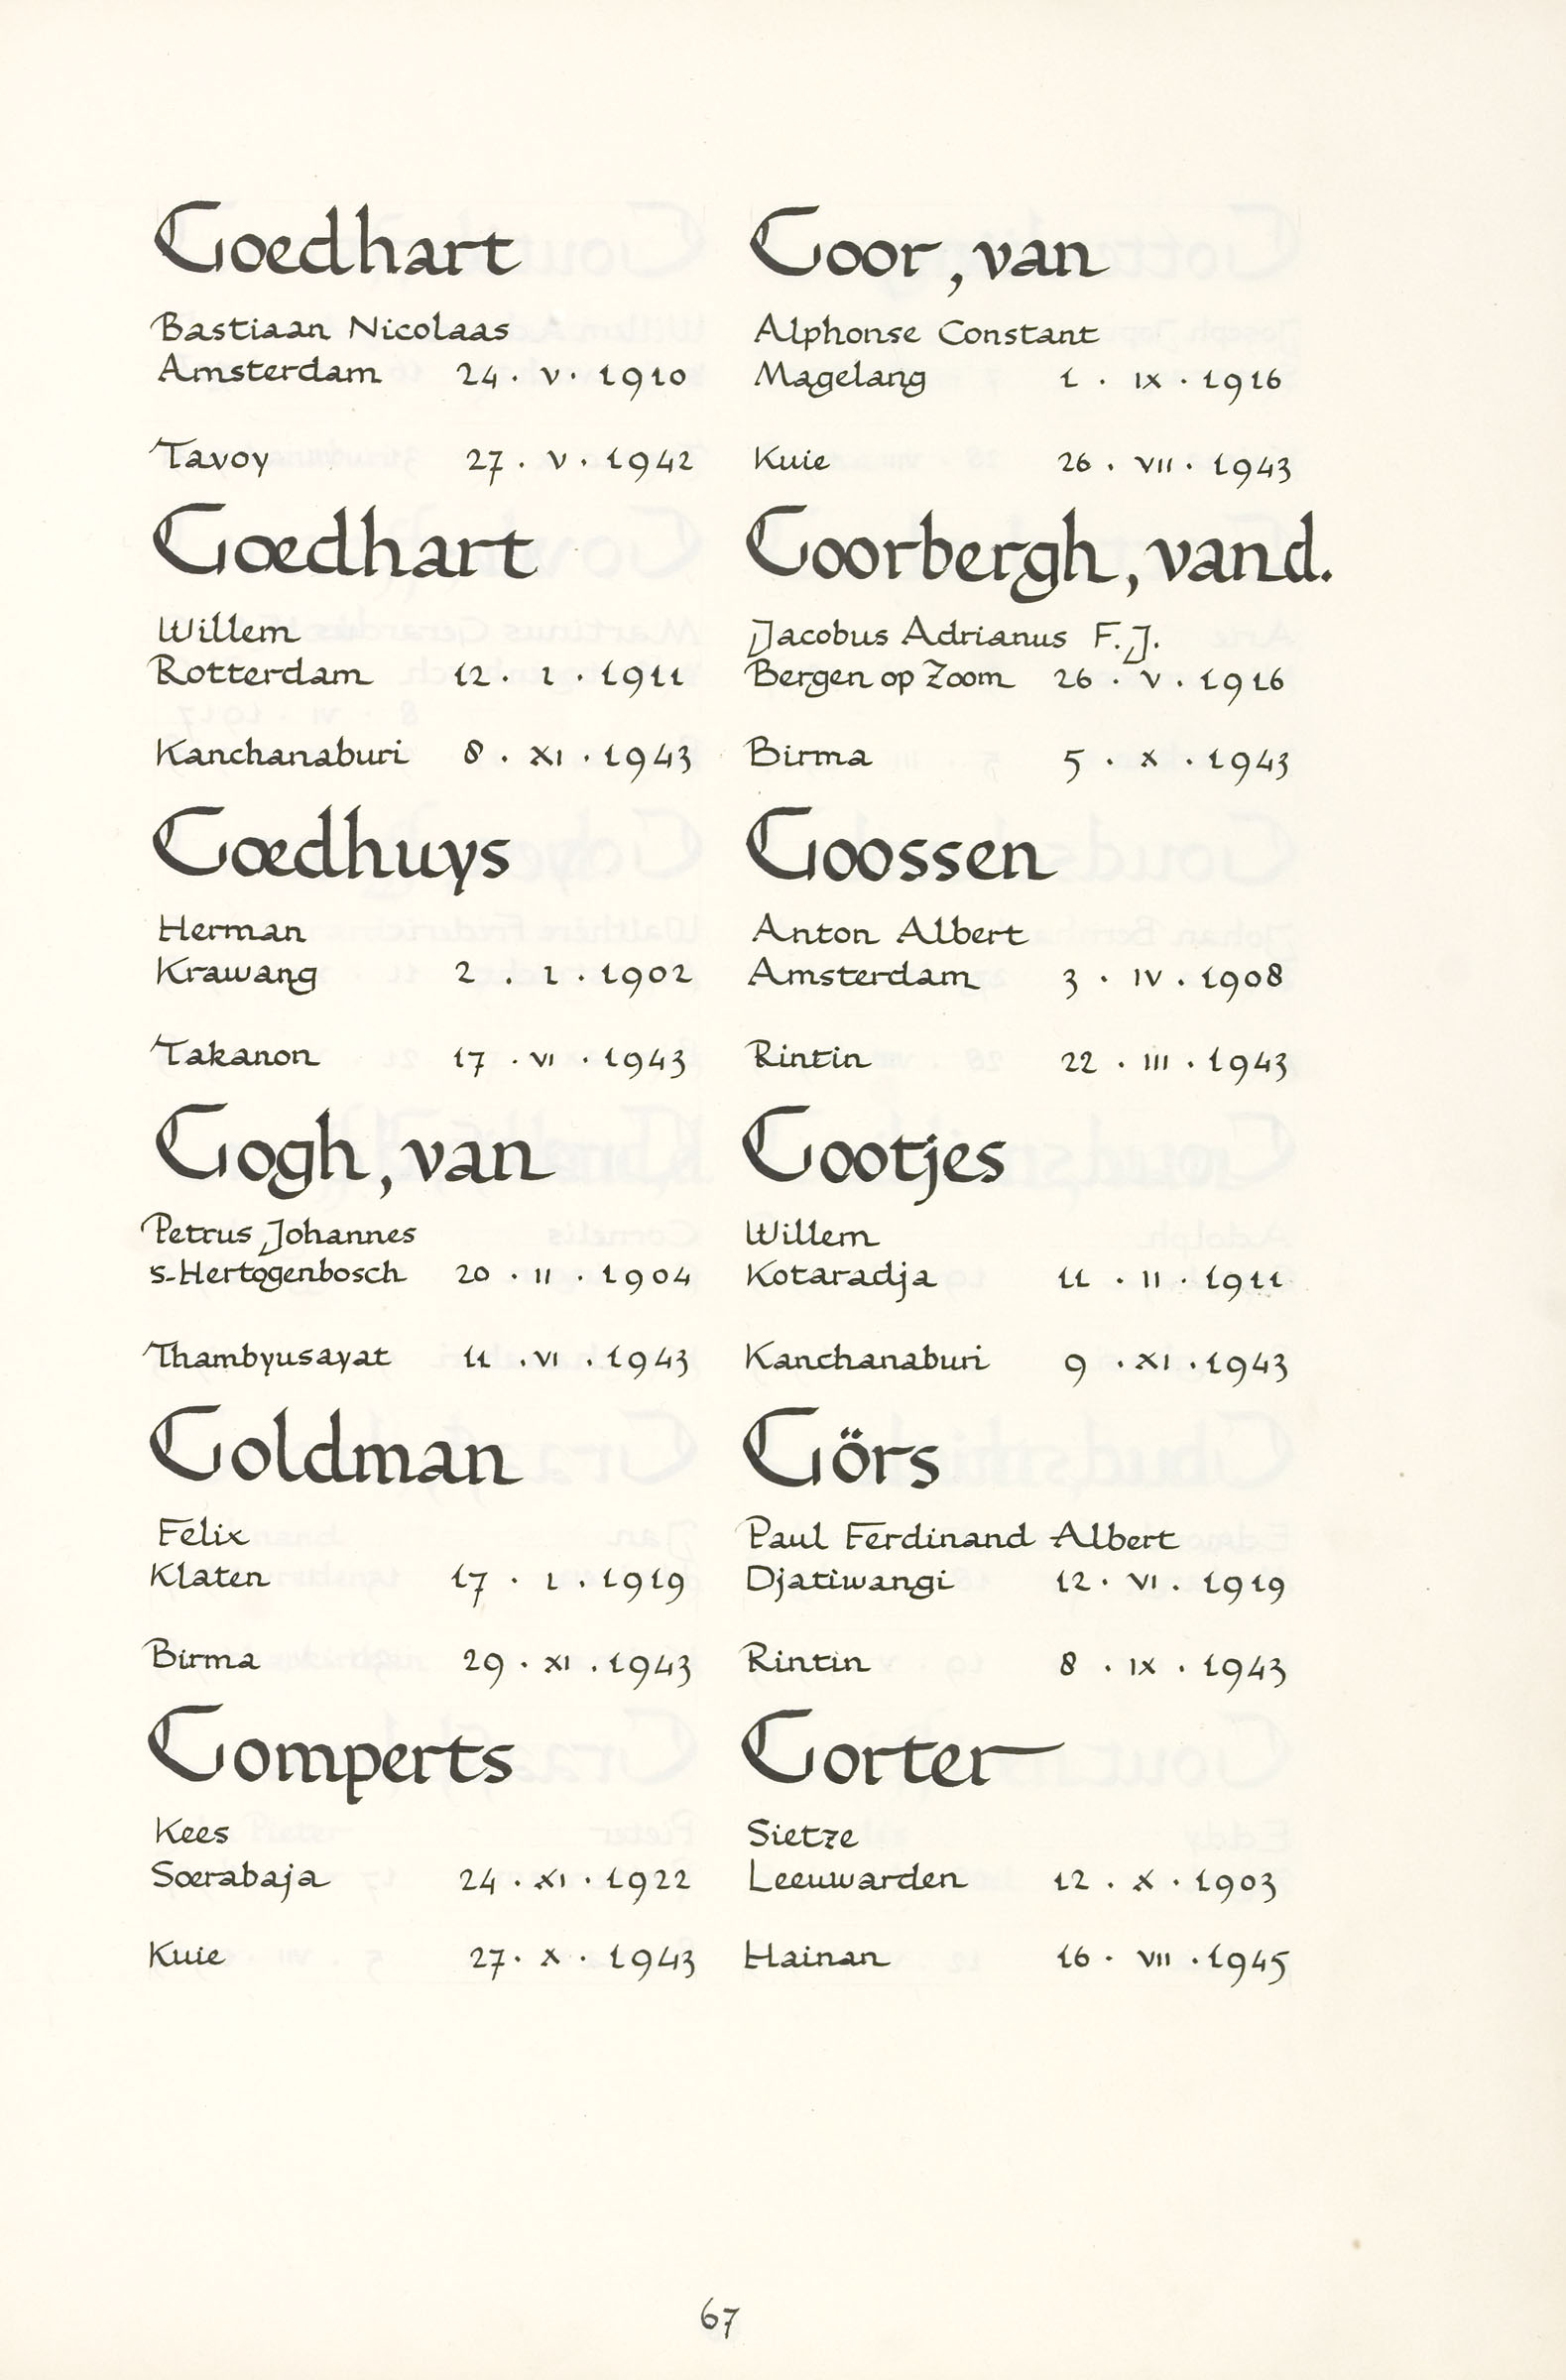 Goedhart
Bastiaan Nicolaas
Amsterdam 24 · V · 1910
Tavoy 27 · V · 1942
Goedhart
Willem
Rotterdam 12 · I · 1911
Kanchanaburi 8 · XI · 1943
Goedhuys
Herman
Krawang 2 · I · 1902
Takanon 17 · VI · 1943
Gogh, van
Petrus Johannes
s-Hertogenbosch 20 · II · 1904
Thambyusayat 11 · VI · 1943
Goldman
Felix
Klaten 17 · I · 1919
Birma 29 · XI · 1943
Gomperts
Kees
Soerabaja 24 · XI · 1922
Kuie 27 · X · 1943
Goor, van
Alphonse Constant
Magelang 1 · IX · 1916
Kuie 26 · VII · 1943
Goorbergh, van d.
Jacobus Adrianus F. J.
Bergen op Zoom 26 · V · 1916
Birma 5 · X · 1943
Goossen
Anton Albert
Amsterdam 3 · IV · 1908
Rintin 22 · III · 1943
Gootjes
Willem
Kotaradja 11 · II · 1911
Kanchanaburi 9 · XI · 1943
Görs
Paul Ferdinand Albert
Djatiwangi 12 · VI · 1919
Rintin 8 · IX · 1943
Gorter
Sietze
Leeuwarden 12 · X · 1903
Hainan 16 · VII · 1945
67